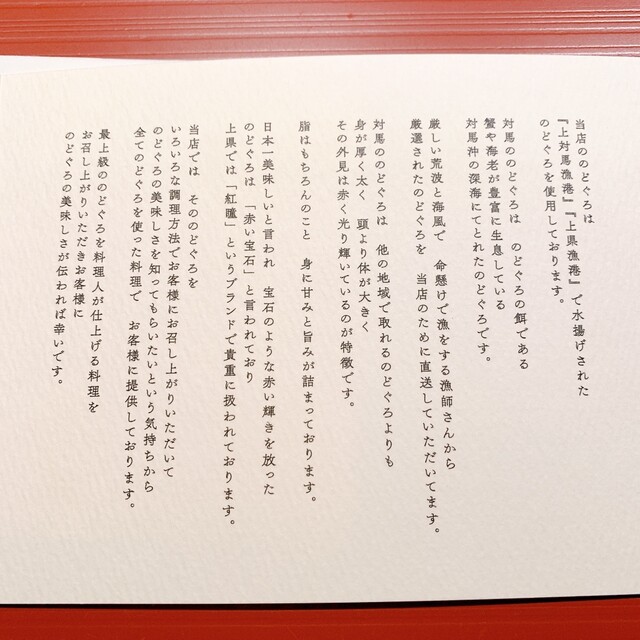 当店ののどぐろは
『上対馬漁港』『上県漁港』で水揚げされた
のどぐろを使用しております。
対馬ののどぐろは　のどぐろの餌である
蟹や海老が豊富に生息している
対馬沖の深海にてとれたのどぐろです。
厳しい荒波と海風で　命懸けで漁をする漁師さんから
厳選されたのどぐろを　当店のために直送していただいてます。
対馬ののどぐろは　他の地域で取れるのどぐろよりも
身が厚く太く　頭より体が大きく
その外見は赤く光り輝いているのが特徴です。
脂はもちろんのこと　身に甘みと旨みが詰まっております。
日本一美味しいと言われ　宝石のような赤い輝きを放った
のどぐろは　「赤い宝石」と言われており
上県では「紅瞳」というブランドで貴重に扱われております。
当店では　そののどぐろを
いろいろな調理方法でお客様にお召し上がりいただいて
のどぐろの美味しさを知ってもらいたいという気持ちから
全てのどぐろを使った料理で　お客様に提供しております。
最上級ののどぐろを料理人が仕上げる料理を
お召し上がりいただきお客様に
のどぐろの美味しさが伝われば幸いです。